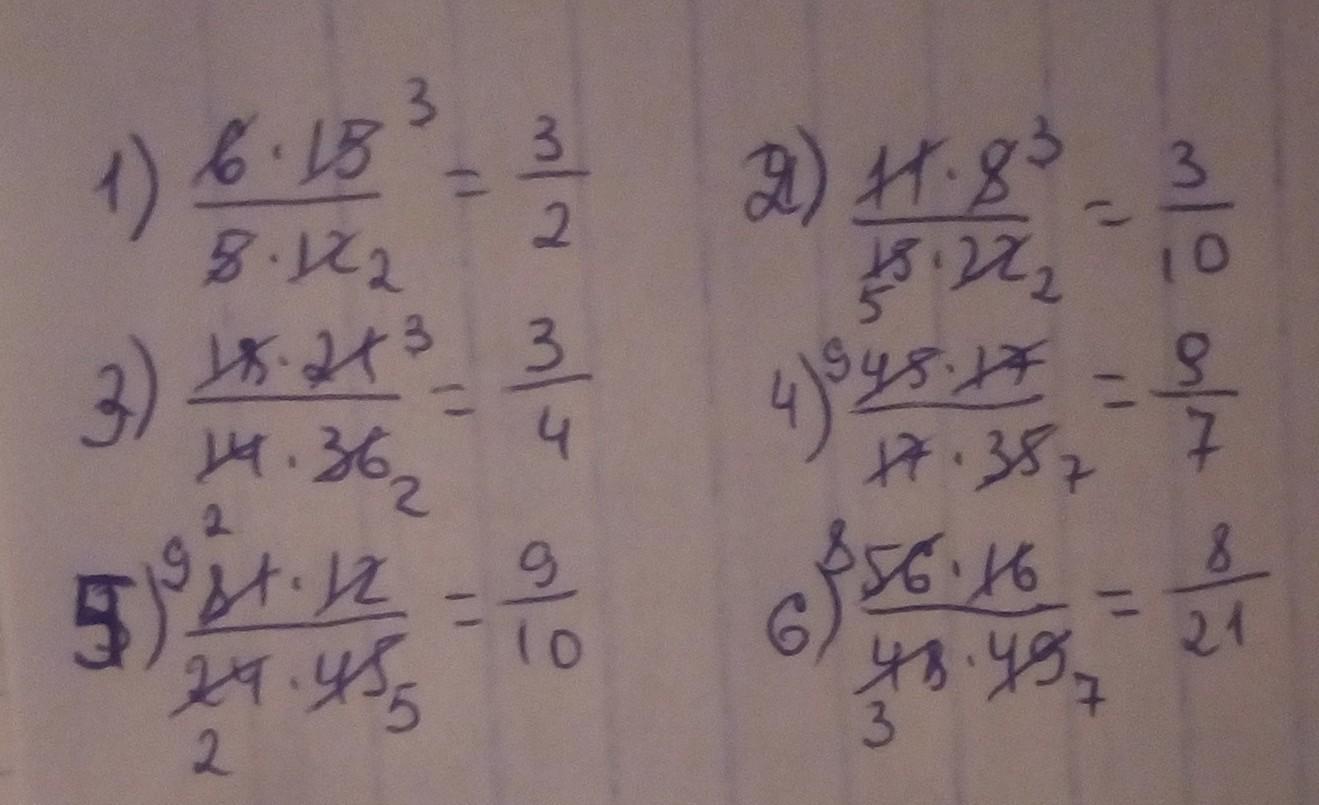 1) 6 · 15 3 / 5 · 12 2 = 3/2
2) 11 · 9 3 / 15 5 · 22 2 = 3/10
3) 18 · 21 3 / 14 2 · 36 2 = 3/4
4) 9 45 · 17 / 17 · 35 7 = 9/7
5) 9 81 · 12 / 24 2 · 45 5 = 9/10
6) 8 56 · 16 / 48 3 · 49 7 = 8/21